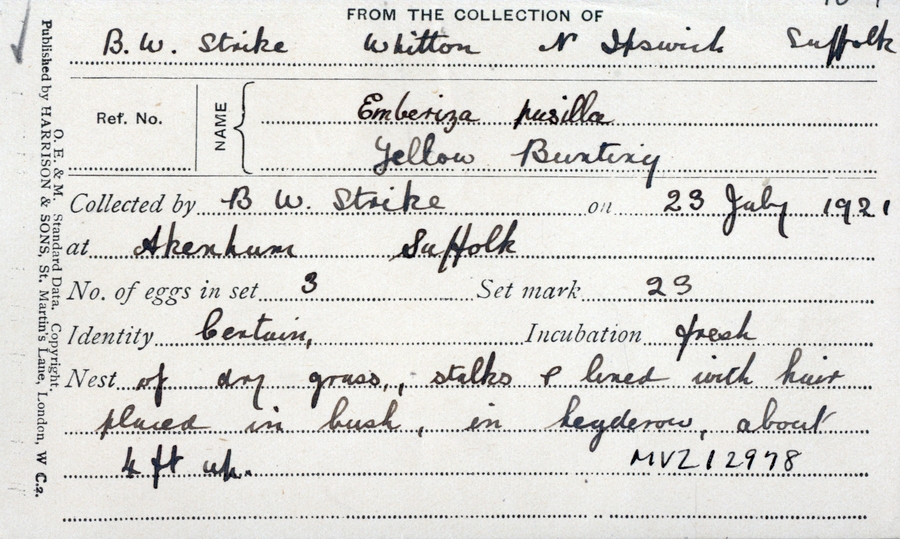 FROM THE COLLECTION OF
B. W. Strike Whitton N Ipswich Suffolk
Ref. No.
NAME
Emberiza pusilla
Yellow Bunting
Collected by B W. Strike on 23 July 1921
at Akenhum Suffolk
No. of eggs in set 3 Set mark 23
Identity Certain, Incubation fresh
Nest of dry grass, stalks & lined with hair
placed in bush, in hegderow, about
4 ft up.
MVZ 12978
O. E. & M. Standard Data. Copyright.
Published by HARRISON & SONS, St. Martin's Lane, London, W C.2.